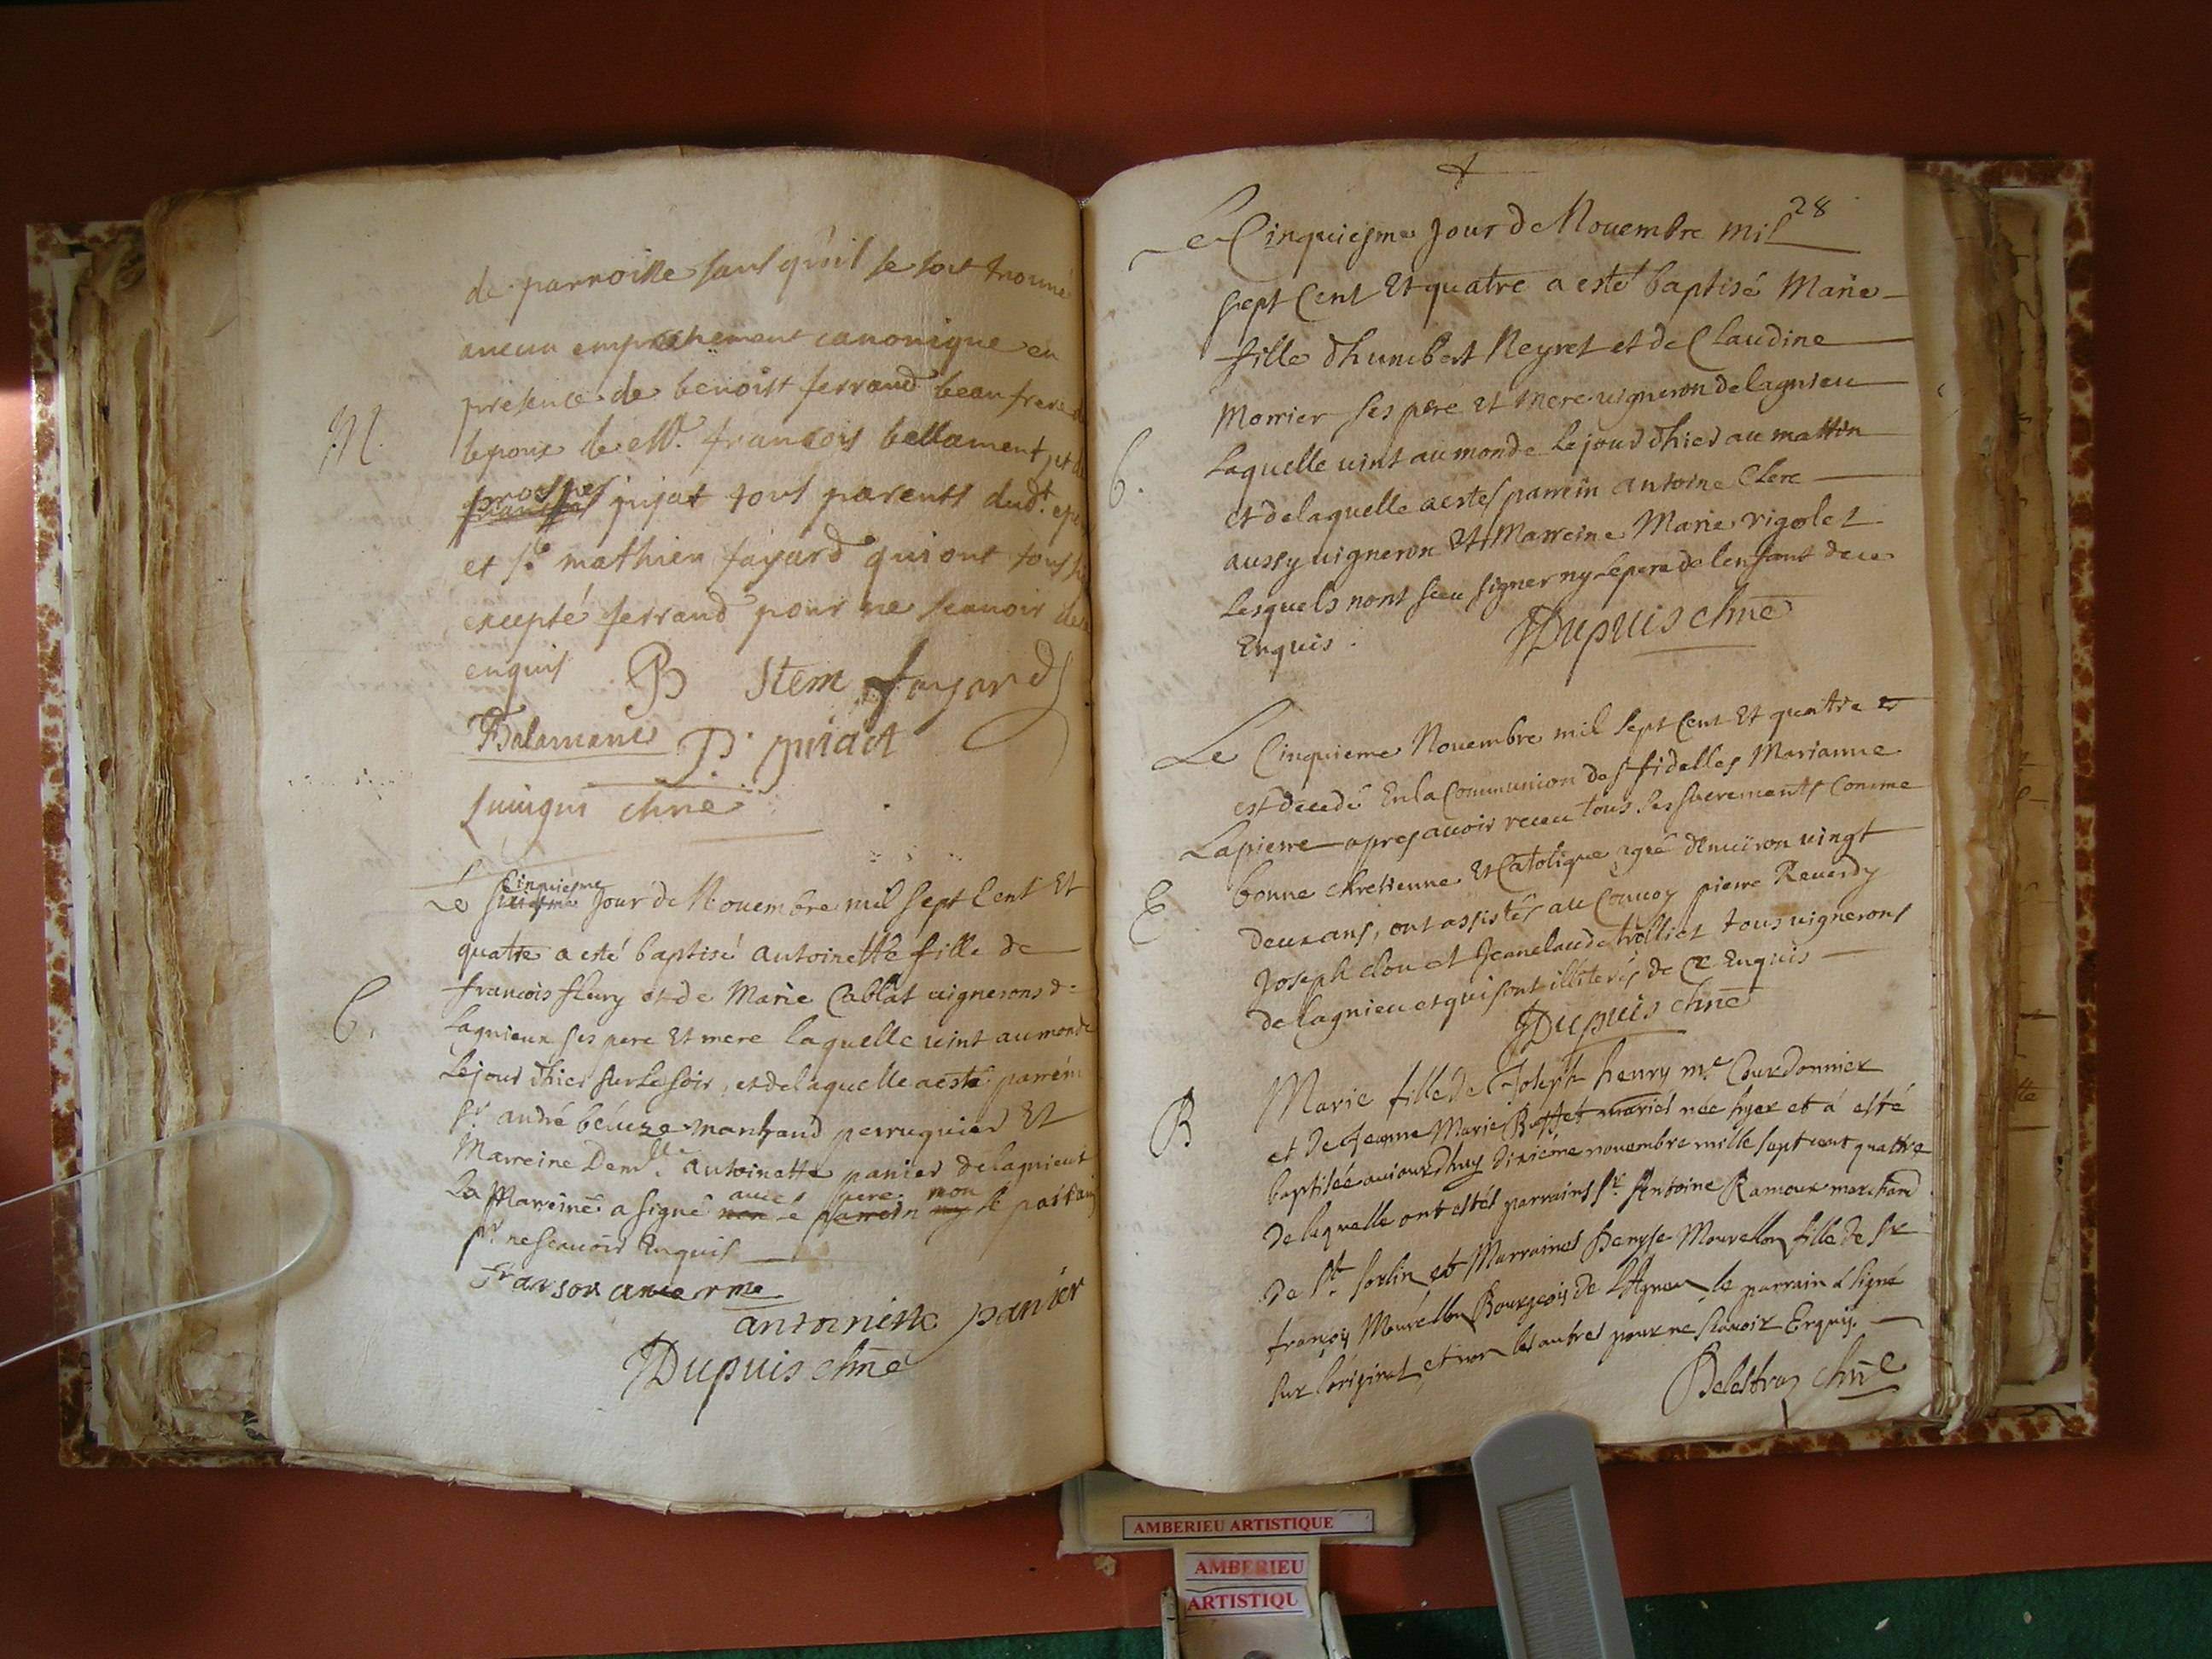 de parroisse sans qu'il se soit trouvé
aucun emprechement canonique en
présence de benoist ferrand beau frere de
M.
lepoux de Mr. francois bellament, et de
prosper pijat tous parents dud.t epoux
et Sr. mathieu fayard qui ont tous
excepté ferrand pour ne scauoir de ce
enquis B Stem fayard
Balamant P. puiat
Quinqui chne
Le Cinquiesme Jour de Nouembre mil sept Cent Et
quatre a esté baptisé antoinette fille de
B.
francois fleury et de Marie Cablat uignerons de
Lagnieux ses pere Et mere laquelle uint au monde
Le jour dhier sur Le soir, et de laquelle a esté parrein
Sr. andré béluze marchand perruquier Et
Marreine Demlle. antoinette panier de lagnieux
La Marreine a signé auec le pere non le parrain
pr. ne scauoir Enquis
antoinette panier
JDupuis chne
28
Le Cinquiesme Jour de Nouembre mil
sept Cent Et quatre a esté baptisé Marie
fille dhumbert Neyret et de Claudine
Morrier ses pere Et mere uigneron de lagnieu
B.
Laquelle uint au monde Le jour dhier au mattin
et de laquelle a estes parrein antoine Clerc
aussy uigneron Et Marreine Marie rigolet
Lesquels nont sceu signer ny Le pere de lenfant de ce
Enquis. JDupuis chne
Le Cinquieme Nouembre mil sept Cent Et quatre
est decedé En la Communion des fidelles Marianne
Lapierre apres auoir receu tous ses sacrements Comme
bonne chretienne Et Catolique agée denuiron uingt
E
deux ans, ont assistés au Conuoy pierre Reuerdy
Joseph clou et Jeanclaude trolliet tous uignerons
de lagnieu et qui sont illiterés de Ce Enquis
JDupuis chne
B
Marie fille de Joseph henry me. Courdonnier
et de Jeanne Marie Buffet mariés née hyer et á esté
baptisée aujourdhuy dixiéme nouembre mille sept cent quattre
de laquelle ont estés parrains Sr. Antoine Ramoux marchand
de St. sorlin et Marraines Denyse Mourellon fille de Sr
françois Mourellon Bourgeois de Lagneu le parrain a signé
sur l'original et non les autres pour ne scauoir Enquis.
Delestraz chne
AMBERIEU ARTISTIQUE
AMBERIEU
ARTISTIQU